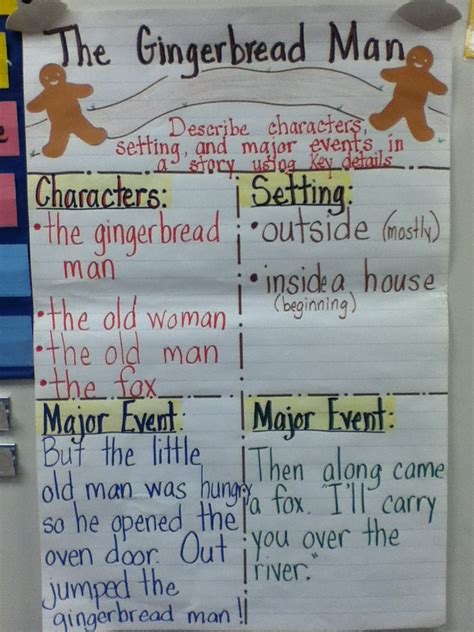 The Gingerbread Man
Describe characters,
setting, and major events in
a story using key details
Characters:
• the gingerbread
man
• the old woman
• the old man
• the fox
Setting:
• outside (mostly)
• inside a house
(beginning)
Major Event:
But the little
old man was hungry
so he opened the
oven door. Out
jumped the
gingerbread man!
Major Event:
Then along came
a fox. "I'll carry
you over the
river."